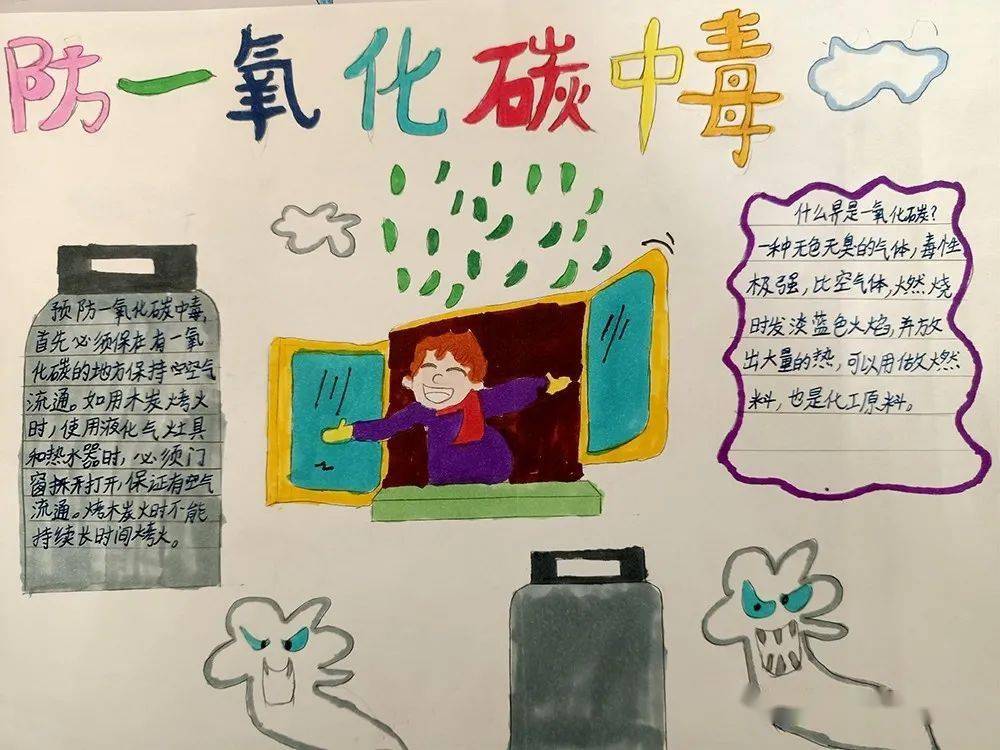 防一氧化碳中毒
预防一氧化碳中毒,
首先必须保在有一氧
化碳的地方保持空空气
流通。如用木炭烤火
时,使用液化气灶具
和热水器时,必须门
窗打开,保证有空气
流通。烤木炭火时不能
持续长时间烤火。
什么是一氧化碳?
一种无色无臭的气体,毒性
极强,比空气体,燃烧
时发淡蓝色火焰,并放
出大量的热,可以用做燃
料,也是化工原料。